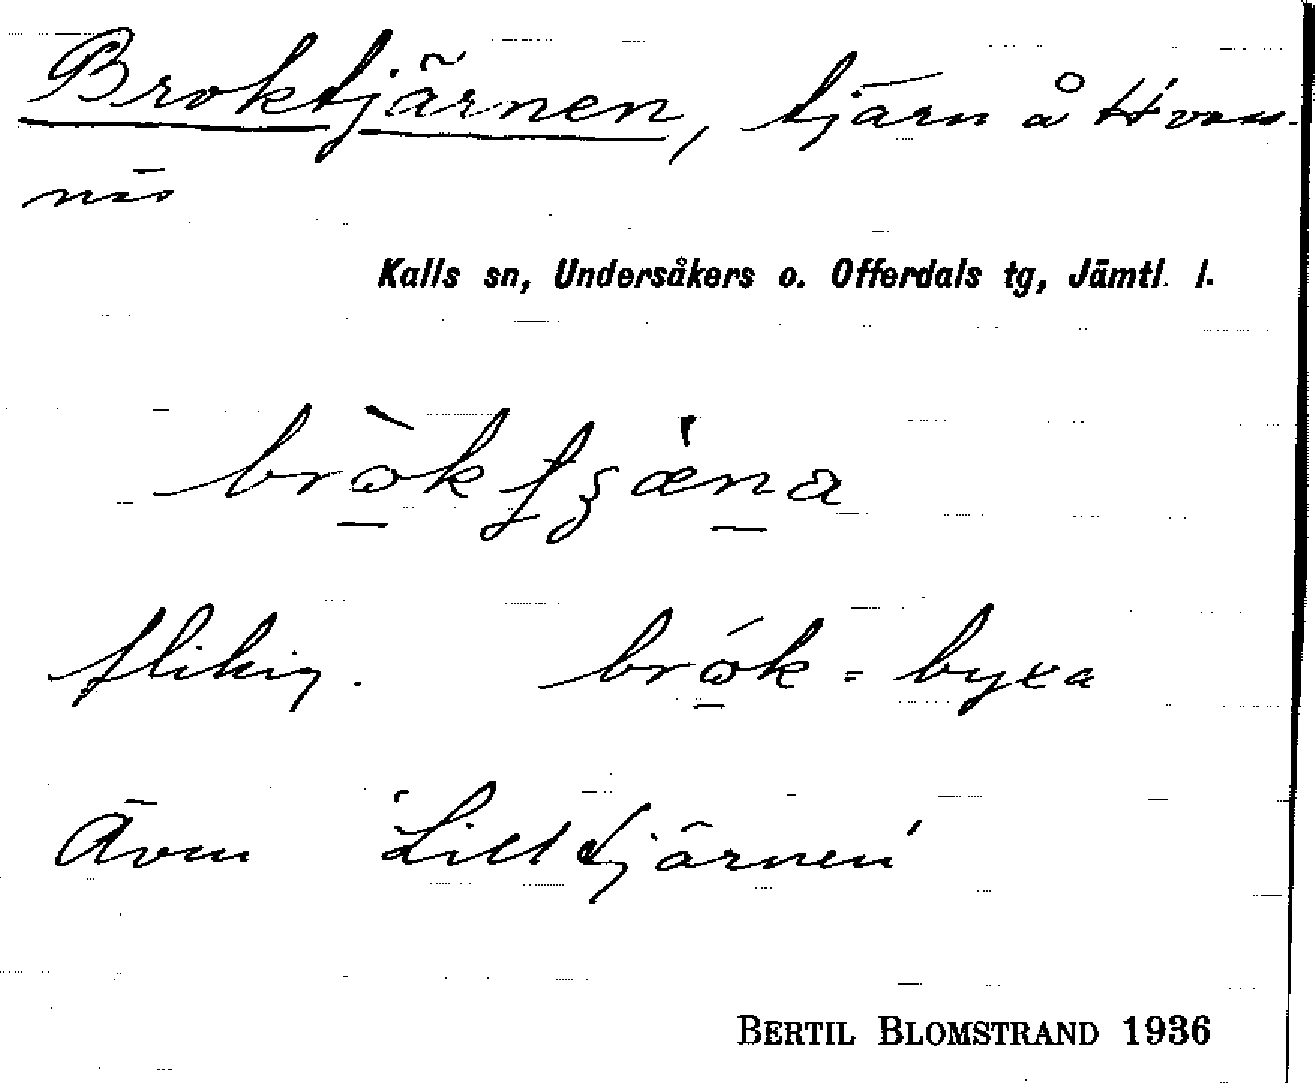 Broktjärnen, tjärn å Hvass-
näs
Kalls sn, Undersåkers o. Offerdals tg, Jämtl. l.
flikig. brók = byxa
Även "Lilltjärnen"
BERTIL BLOMSTRAND 1936